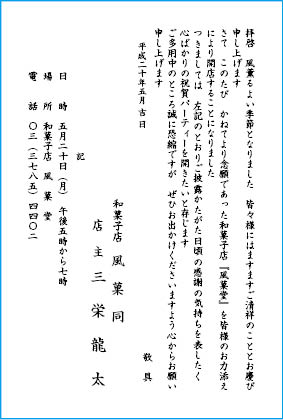 拝啓　風薫るよい季節となりました　皆々様にはますますご清祥のこととお慶び
申し上げます
さて　このたび　かねてより念願であった和菓子店『風菓堂』を皆様のお力添え
により開店することになりました
つきましては　左記のとおりご披露かたがた日頃の感謝の気持ちを表したく
心ばかりの祝賀パーティーを開きたいと存じます
ご多用中のところ誠に恐縮ですが　ぜひお出かけくださいますよう心からお願い
申し上げます
敬具
平成二十年五月吉日
和菓子店　風菓同
店主　三栄龍太
記
日　時　五月二十日（月）　午後五時から七時
場　所　和菓子店　風菓堂
電　話　〇三（三七八五）四四〇二